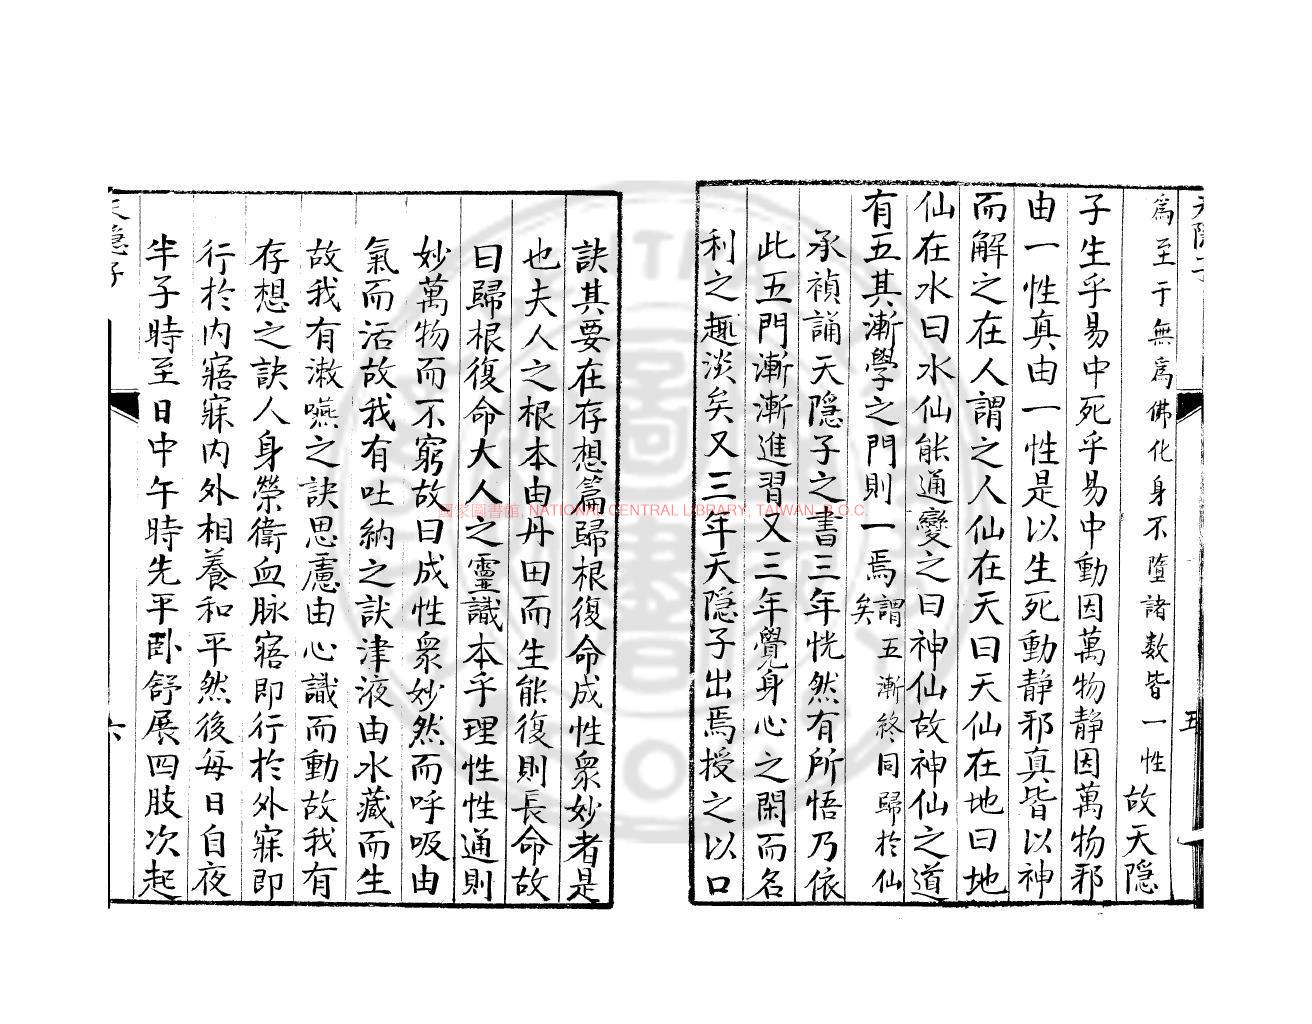 天隱子
五
爲至于無爲佛化身不墮諸數皆一性故天隱
子生乎易中死乎易中動因萬物靜因萬物邪
由一性真由一性是以生死動靜邪真皆以神
而解之在人謂之人仙在天曰天仙在地曰地
仙在水曰水仙能通變之曰神仙故神仙之道
有五其漸學之門則一焉謂五漸終同歸於仙矣
承禎誦天隱子之書三年恍然有所悟乃依
此五門漸漸進習又三年覺身心之閑而名
利之趣淡矣又三年天隱子出焉授之以口
訣其要在存想篇歸根復命成性衆妙者是
也夫人之根本由丹田而生能復則長命故
曰歸根復命大人之靈識本乎理性性通則
妙萬物而不窮故曰成性衆妙然而呼吸由
氣而活故我有吐納之訣津液由水藏而生
故我有漱嚥之訣思慮由心識而動故我有
存想之訣人身榮衛血脉寤即行於外寐即
行於内寤寐内外相養和平然後每日自夜
半子時至日中午時先平卧舒展四肢次起
天隱子
六
國家圖書館, NATIONAL CENTRAL LIBRARY, TAIWAN, R.O.C